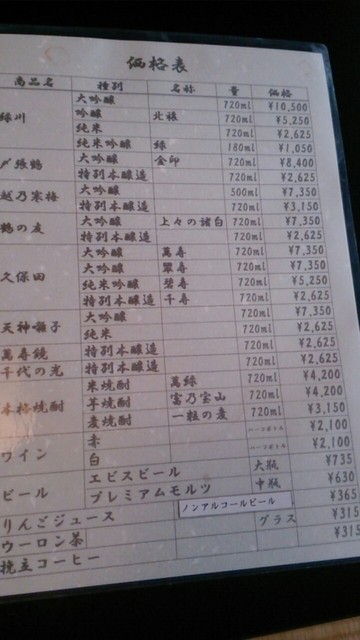 価格表
商品名 種別 名称 量 価格
緑川 大吟醸 720ml ¥10,500
吟醸 北穣 720ml ¥5,250
純米 720ml ¥2,625
純米吟醸 緑 180ml ¥1,050
〆張鶴 大吟醸 金印 720ml ¥8,400
特別本醸造 720ml ¥2,625
越乃寒梅 大吟醸 500ml ¥7,350
特別本醸造 720ml ¥3,150
鶴の友 大吟醸 上々の諸白 720ml ¥7,350
特別本醸造 720ml ¥2,625
久保田 大吟醸 萬寿 720ml ¥7,350
大吟醸 翠寿 720ml ¥7,350
純米吟醸 碧寿 720ml ¥5,250
特別本醸造 千寿 720ml ¥2,625
天神囃子 大吟醸 720ml ¥7,350
純米 720ml ¥2,625
萬寿鏡 特別本醸造 720ml ¥2,625
千代の光 特別本醸造 720ml ¥2,625
本格焼酎 米焼酎 萬緑 720ml ¥4,200
芋焼酎 富乃宝山 720ml ¥4,200
麦焼酎 一粒の麦 720ml ¥3,150
ワイン 赤 ハーフボトル ¥2,100
白 ハーフボトル ¥2,100
ビール エビスビール 大瓶 ¥735
プレミアムモルツ 中瓶 ¥630
ノンアルコールビール ¥365
りんごジュース グラス ¥315
ウーロン茶 ¥315
挽立コーヒー